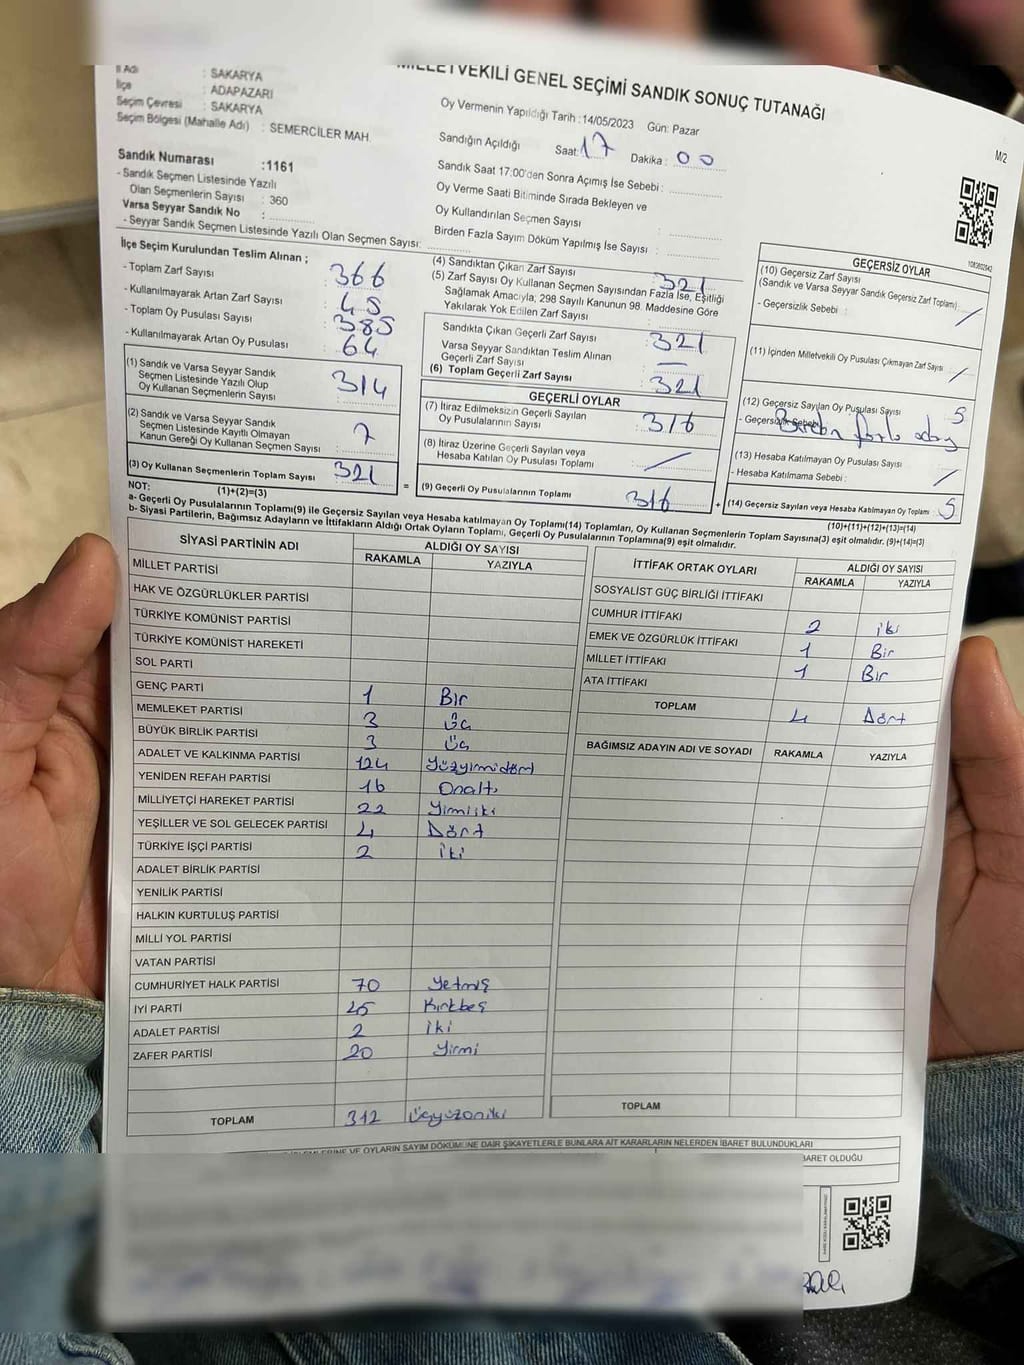 MİLLETVEKİLİ GENEL SEÇİMİ SANDIK SONUÇ TUTANAĞI
İl Adı : SAKARYA
İlçe : ADAPAZARI
Seçim Çevresi : SAKARYA
Seçim Bölgesi (Mahalle Adı) : SEMERCİLER MAH.
Sandık Numarası :1161
- Sandık Seçmen Listesinde Yazılı
Olan Seçmenlerin Sayısı : 360
Varsa Seyyar Sandık No :
- Seyyar Sandık Seçmen Listesinde Yazılı Olan Seçmen Sayısı:
Oy Vermenin Yapıldığı Tarih :14/05/2023 Gün: Pazar
Sandığın Açıldığı Saat: 17 Dakika : 00
Sandık Saat 17:00'den Sonra Açımış İse Sebebi :
Oy Verme Saati Bitiminde Sırada Bekleyen ve
Oy Kullandırılan Seçmen Sayısı :
Birden Fazla Sayım Döküm Yapılmış İse Sayısı :
M/2
İlçe Seçim Kurulundan Teslim Alınan ;
- Toplam Zarf Sayısı : 366
- Kullanılmayarak Artan Zarf Sayısı : 45
- Toplam Oy Pusulası Sayısı : 385
- Kullanılmayarak Artan Oy Pusulası : 64
(1) Sandık ve Varsa Seyyar Sandık
Seçmen Listesinde Yazılı Olup
Oy Kullanan Seçmenlerin Sayısı : 314
(2) Sandık ve Varsa Seyyar Sandık
Seçmen Listesinde Kayıtlı Olmayan
Kanun Gereği Oy Kullanan Seçmen Sayısı : 7
(3) Oy Kullanan Seçmenlerin Toplam Sayısı : 321
(1)+(2)=(3)
(4) Sandıktan Çıkan Zarf Sayısı : 321
(5) Zarf Sayısı Oy Kullanan Seçmen Sayısından Fazla İse, Eşitliği
Sağlamak Amacıyla; 298 Sayılı Kanunun 98. Maddesine Göre
Yakılarak Yok Edilen Zarf Sayısı :
Sandıkta Çıkan Geçerli Zarf Sayısı : 321
Varsa Seyyar Sandıktan Teslim Alınan
Geçerli Zarf Sayısı : —
(6) Toplam Geçerli Zarf Sayısı : 321
GEÇERLİ OYLAR
(7) İtiraz Edilmeksizin Geçerli Sayılan
Oy Pusulalarının Sayısı : 316
(8) İtiraz Üzerine Geçerli Sayılan veya
Hesaba Katılan Oy Pusulası Toplamı : /
= (9) Geçerli Oy Pusulalarının Toplamı : 316
GEÇERSİZ OYLAR
(10) Geçersiz Zarf Sayısı
(Sandık ve Varsa Seyyar Sandık Geçersiz Zarf Toplamı) /
- Geçersizlik Sebebi :
(11) İçinden Milletvekili Oy Pusulası Çıkmayan Zarf Sayısı : /
(12) Geçersiz Sayılan Oy Pusulası Sayısı : 5
- Geçersizlik Sebebi : Birden fazla oday
(13) Hesaba Katılmayan Oy Pusulası Sayısı :
- Hesaba Katılmama Sebebi : /
+ (14) Geçersiz Sayılan veya Hesaba Katılmayan Oy Toplamı : 5
(10)+(11)+(12)+(13)=(14)
NOT:
a- Geçerli Oy Pusulalarının Toplamı(9) ile Geçersiz Sayılan veya Hesaba katılmayan Oy Toplamı(14) Toplamları, Oy Kullanan Seçmenlerin Toplam Sayısına(3) eşit olmalıdır. (9)+(14)=(3)
b- Siyasi Partilerin, Bağımsız Adayların ve İttifakların Aldığı Ortak Oyların Toplamı, Geçerli Oy Pusulalarının Toplamına(9) eşit olmalıdır.
SİYASİ PARTİNİN ADI ALDIĞI OY SAYISI
RAKAMLA YAZIYLA
MİLLET PARTİSİ
HAK VE ÖZGÜRLÜKLER PARTİSİ
TÜRKİYE KOMÜNİST PARTİSİ
TÜRKİYE KOMÜNİST HAREKETİ
SOL PARTİ
GENÇ PARTİ 1 Bir
MEMLEKET PARTİSİ 3 Üç
BÜYÜK BİRLİK PARTİSİ 3 Üç
ADALET VE KALKINMA PARTİSİ 124 Yüzyirmidört
YENİDEN REFAH PARTİSİ 16 Onaltı
MİLLİYETÇİ HAREKET PARTİSİ 22 Yirmiiki
YEŞİLLER VE SOL GELECEK PARTİSİ 4 Dört
TÜRKİYE İŞÇİ PARTİSİ 2 İki
ADALET BİRLİK PARTİSİ
YENİLİK PARTİSİ
HALKIN KURTULUŞ PARTİSİ
MİLLİ YOL PARTİSİ
VATAN PARTİSİ
CUMHURİYET HALK PARTİSİ 70 Yetmiş
İYİ PARTİ 45 Kırkbeş
ADALET PARTİSİ 2 iki
ZAFER PARTİSİ 20 Yirmi
TOPLAM 312 Üçyüzoniki
İTTİFAK ORTAK OYLARI ALDIĞI OY SAYISI
RAKAMLA YAZIYLA
SOSYALİST GÜÇ BİRLİĞİ İTTİFAKI
CUMHUR İTTİFAKI 2 iki
EMEK VE ÖZGÜRLÜK İTTİFAKI 1 Bir
MİLLET İTTİFAKI 1 Bir
ATA İTTİFAKI
TOPLAM 4 Dört
BAĞIMSIZ ADAYIN ADI VE SOYADI RAKAMLA YAZIYLA
TOPLAM
VE OYLARIN SAYIM DÖKÜMÜNE DAİR ŞİKAYETLERLE BUNLARA AİT KARARLARIN NELERDEN İBARET BULUNDUKLARI
BARET OLDUĞU